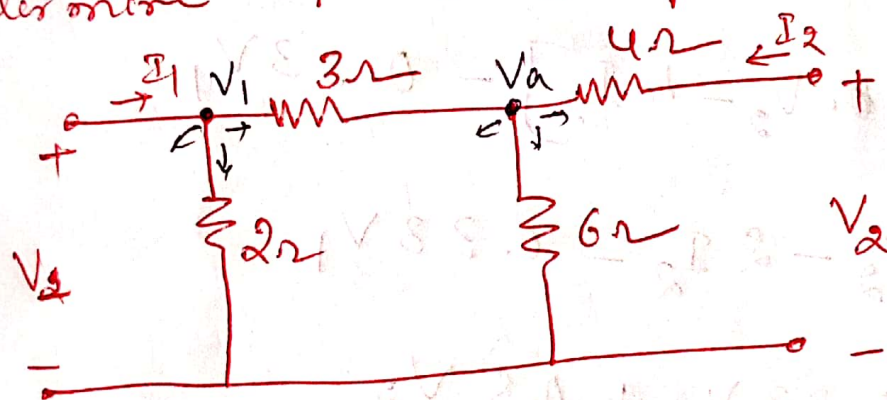 I1 V1 3Ω Va 4Ω I2
+ +
2Ω 6Ω V2
V1
- -